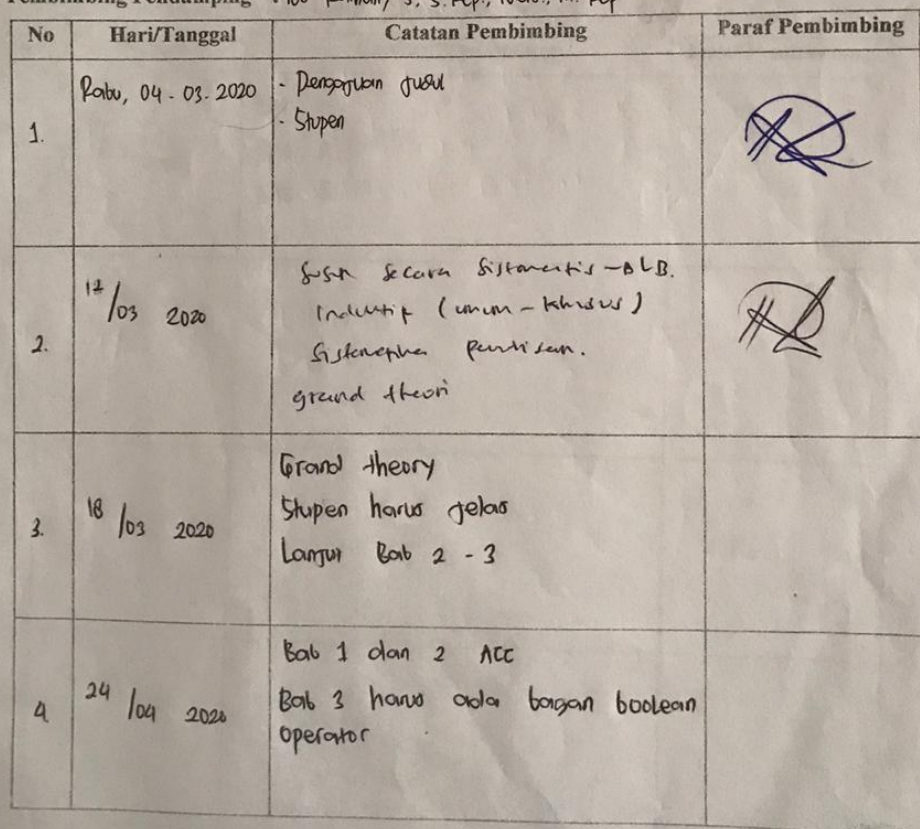 No Hari/Tanggal Catatan Pembimbing Paraf Pembimbing
1. Rabu, 04-03-2020 - Pengajuan Judul
- Stupen
2. 12/03 2020 Susun secara sistematis → BLB.
Induktif (umum - khusus)
Sistematika penulisan.
grand theori
3. 18/03 2020 Grand theory
Stupen harus jelas
Lanjut Bab 2 - 3
4. 24/04 2020 Bab 1 dan 2 ACC
Bab 3 harus ada bagan boolean
operator